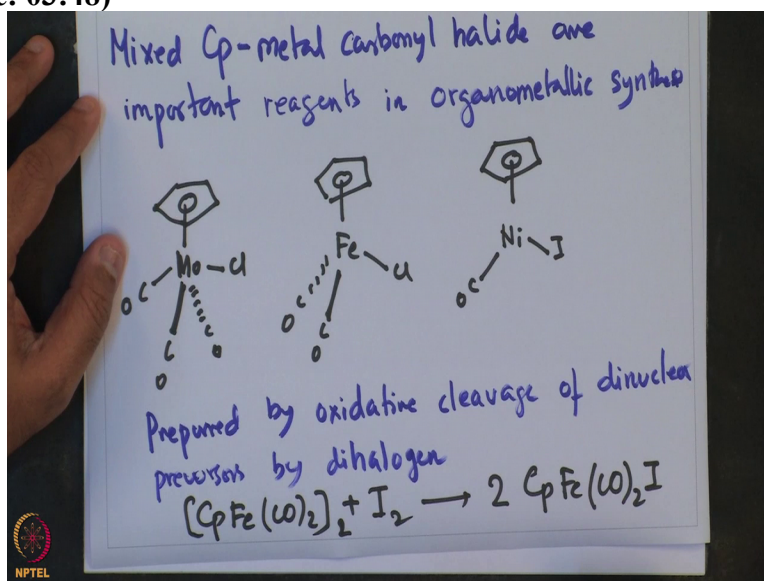 c: 05:48)
Mixed Cp-metal carbonyl halide are
important reagents in organometallic
Mo-Cl
OC
C
O
C
O
Fe
Cl
C
O
C
O
Ni
I
OC
Prepurred by oxidative cleavage of dinuclear
precursors by dihalogen
[CpFe(CO)2]2 + I2 ⟶ 2 CpFe(CO)2I
NPTEL